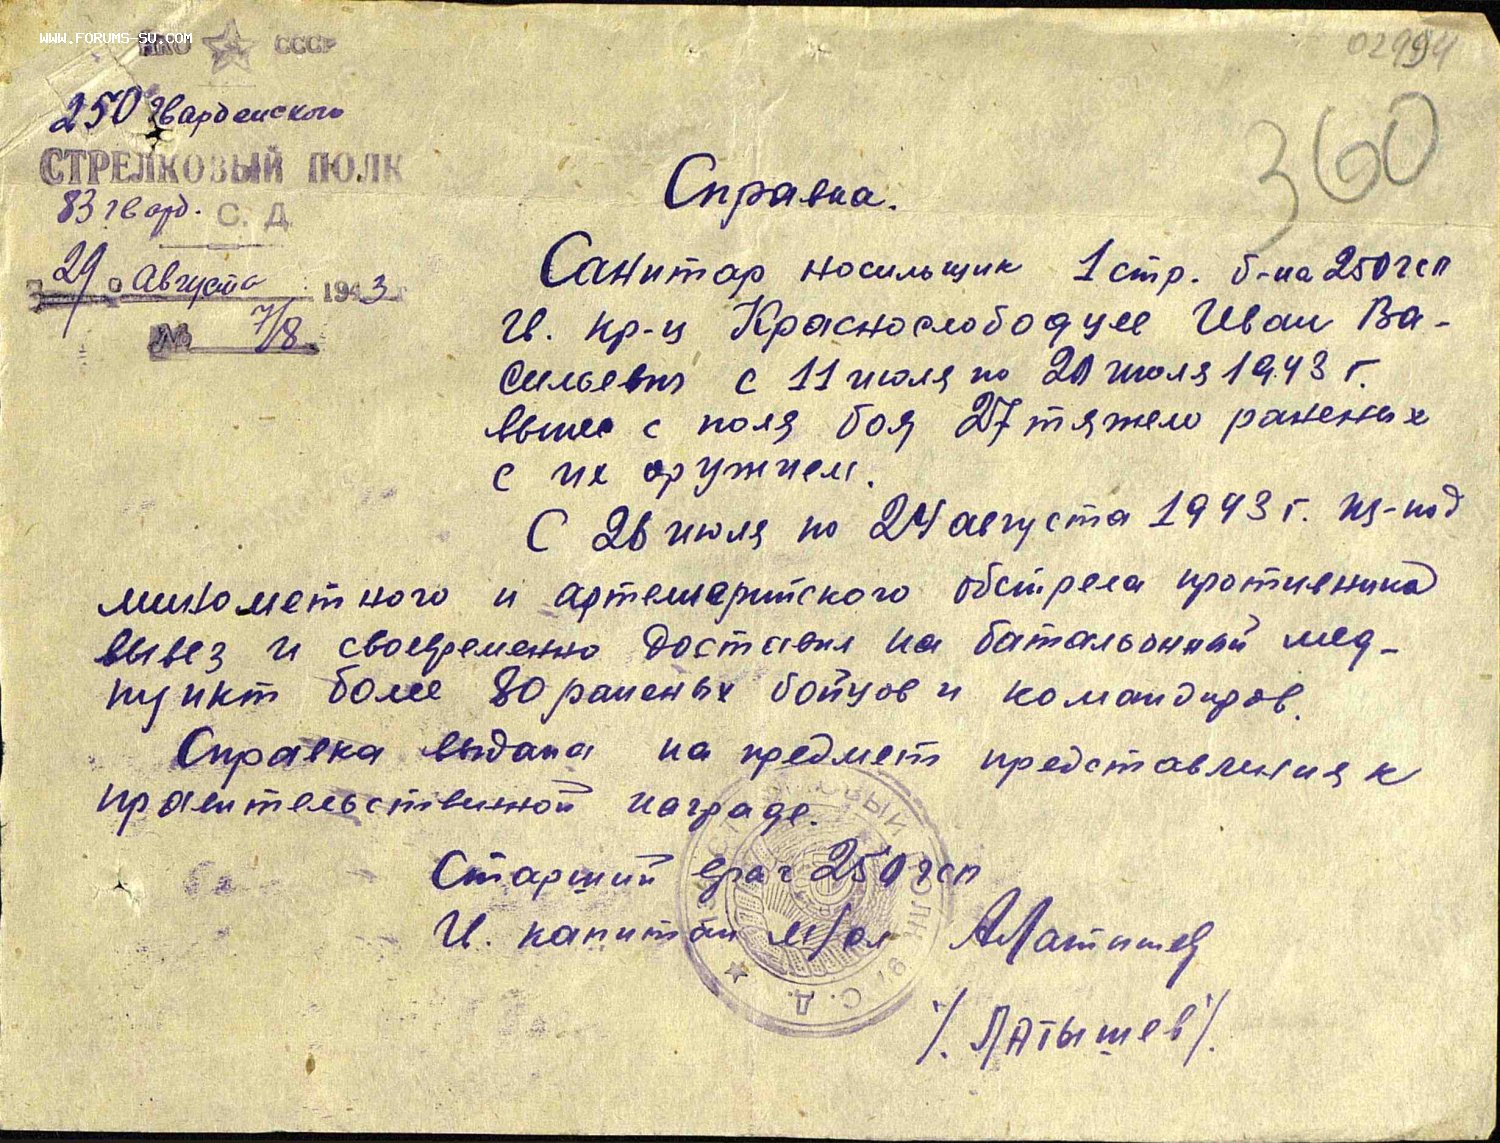 www.forums-su.com
НКО СССР
02994
250 Гвардейского
360
СТРЕЛКОВЫЙ ПОЛК
83 гвард. С. Д.
29 августа 1943 г
№ 7/8
Справка.
Санитар носильщик 1 стр. б-на 250 гсп
гв. кр-ц Краснослободцев Иван Ва-
сильевич с 11 июля по 20 июля 1943 г.
вынес с поля боя 27 тяжело раненных
с их оружием.
С 26 июля по 24 августа 1943 г. из-под
минометного и артеллерийского обстрела противника
вывез и своевременно доставил на батальонный мед-
пункт более 80 раненых бойцов и командиров.
Справка выдана на предмет представления к
правительственной награде.
Старший врач 250 гсп
Гв. капитан м/сл АЛатышев
/. Латышев /.
С. Д.